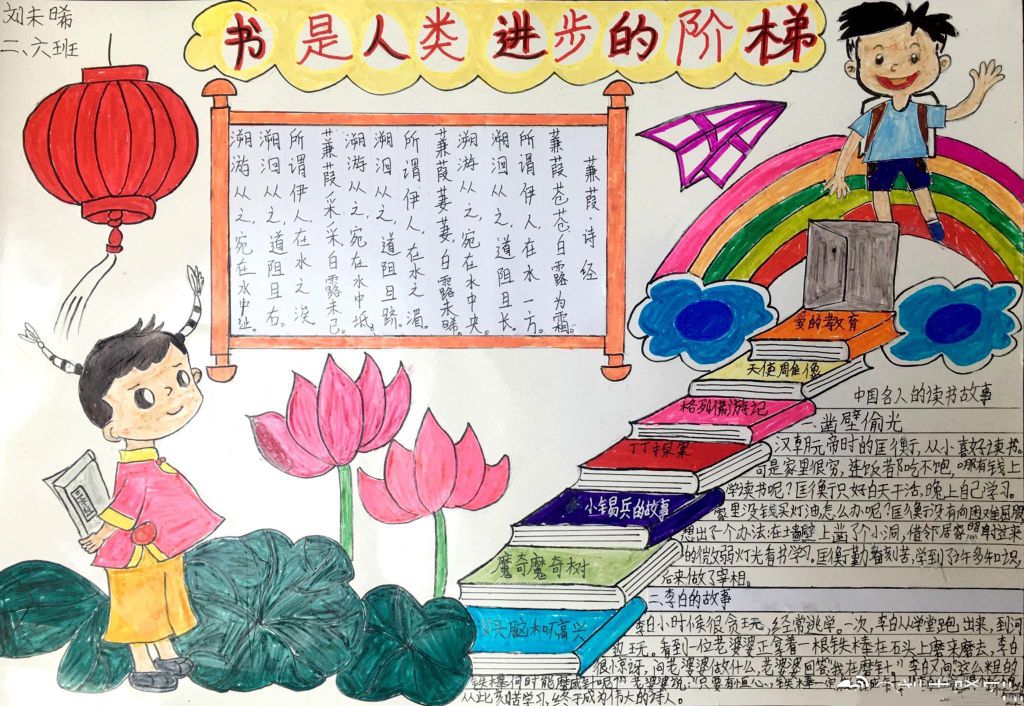 刘未晞
二、六班
书是人类进步的阶梯
蒹葭·诗经
蒹葭苍苍,白露为霜。
所谓伊人,在水一方。
溯洄从之,道阻且长。
溯游从之,宛在水中央。
蒹葭萋萋,白露未晞。
所谓伊人,在水之湄。
溯洄从之,道阻且跻。
溯游从之,宛在水中坻。
蒹葭采采,白露未已。
所谓伊人,在水之涘
溯洄从之,道阻且右。
溯游从之,宛在水中沚。
爱的教育
天使雕像
格列佛游记
丁丁探案
小锡兵的故事
魔奇魔奇树
头脑木叮高兴
中国名人的读书故事
一、凿壁偷光
汉朝元帝时的匡衡,从小喜好读书。
可是家里很穷,连饭都吃不饱,哪有钱上
学读书呢?匡衡只好白天干活,晚上自己学习。
家里没钱买灯油怎么办呢?匡衡没有向困难屈服
想出了个办法:在墙壁上凿了个小洞,借邻居家照过来
的微弱灯光看书学习。匡衡勤奋刻苦,学到了许多知识,
后来做了宰相。
二、李白的故事
李白小时候很贪玩,经常逃学。一次,李白从学堂跑出来,到河
边玩。看到一位老婆婆正拿着一根铁棒在石头上磨来磨去,李白
很惊讶,问老婆婆做什么,老婆婆回答"我在磨针"李白又问"这么粗的
铁棒何时能磨成针呢?"老婆婆说:"只要有恒心,铁棒一定
从此刻苦学习,终于成为伟大的诗人。